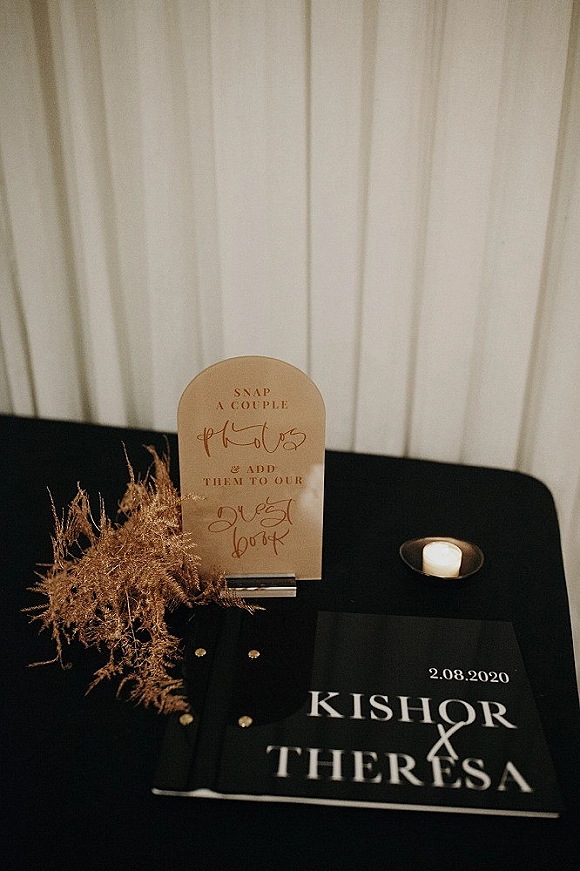 SNAP
A COUPLE
photos
& ADD
THEM TO OUR
guest
book
2.08.2020
KISHOR
X
THERESA